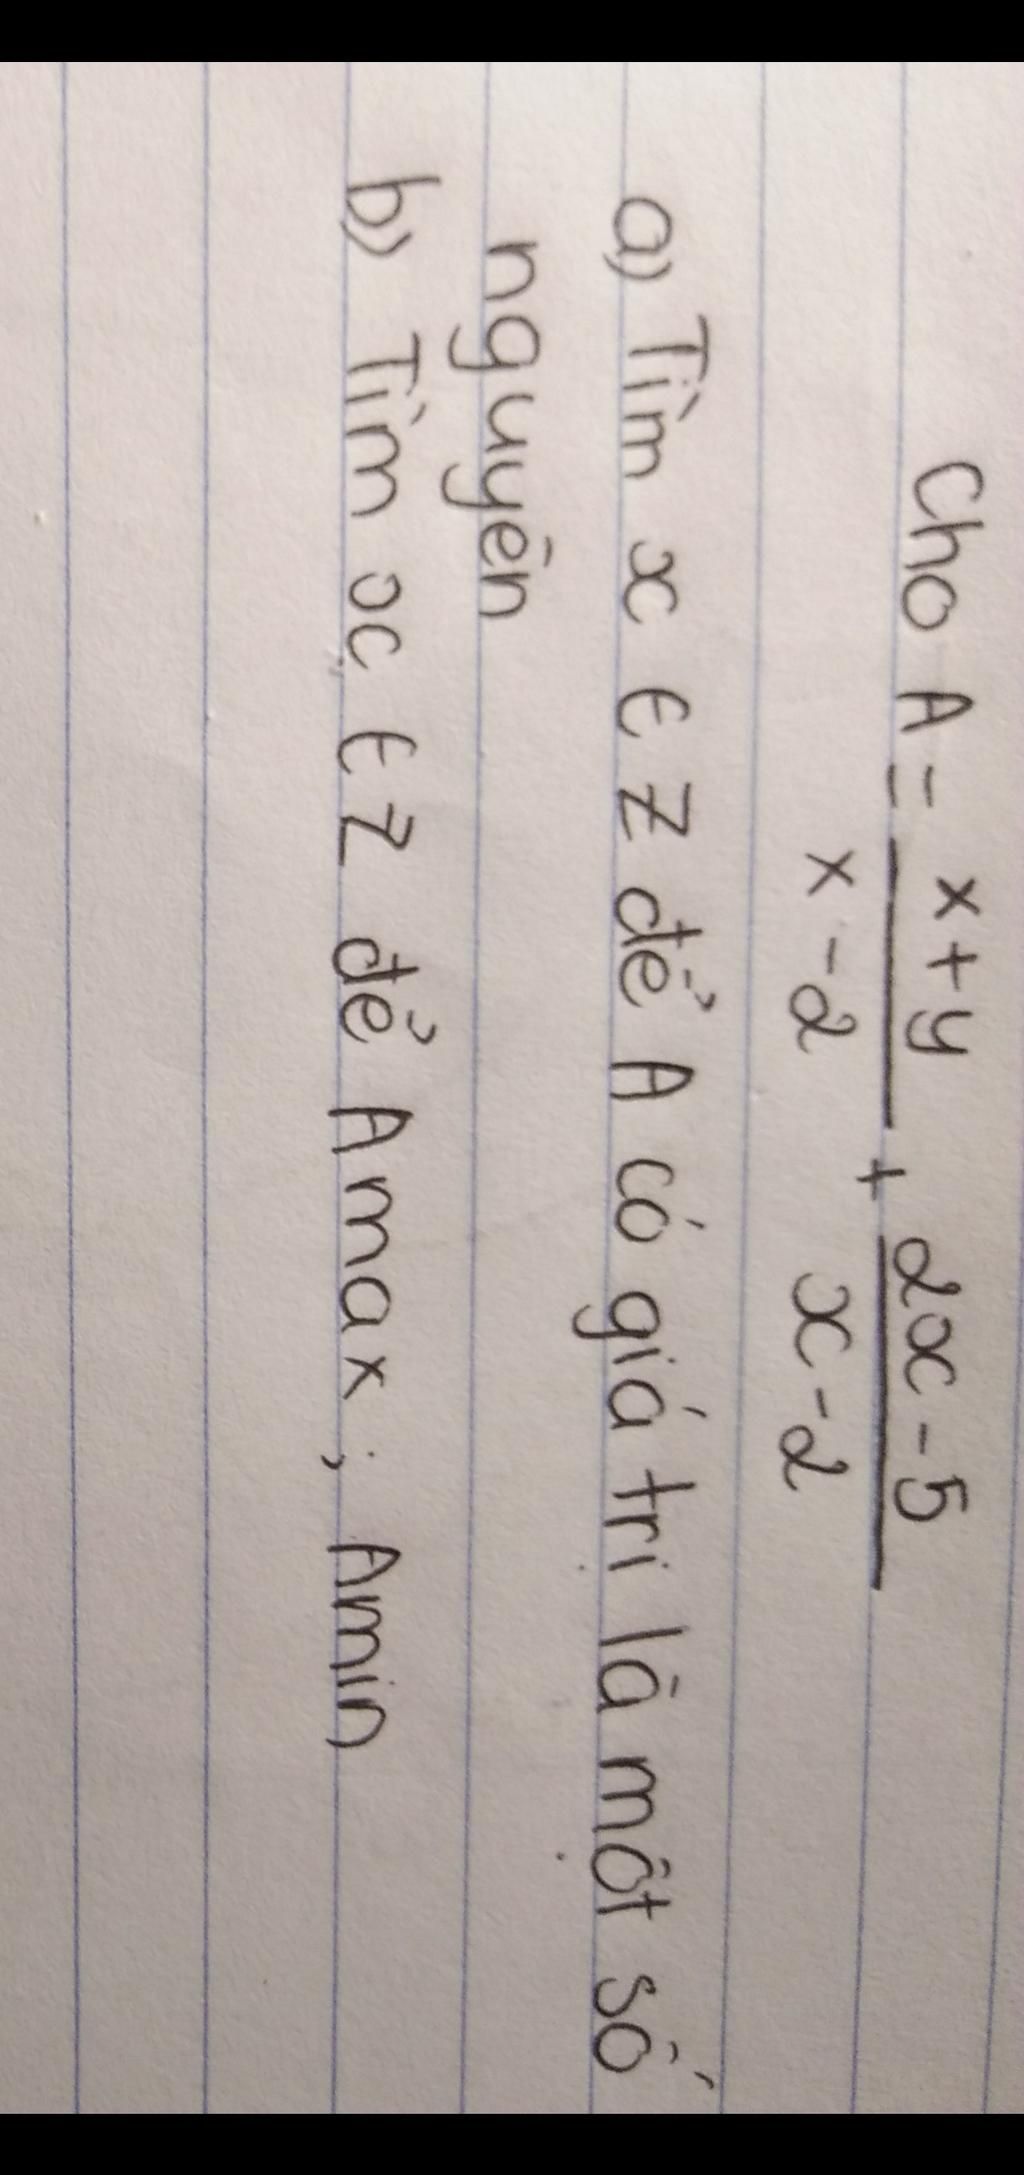 Cho A = x+y / x-2 + 2x-5 / x-2
a) Tìm x ∈ Z để A có giá trị là một số
nguyên
b) Tìm x ∈ Z để A max ; Amin